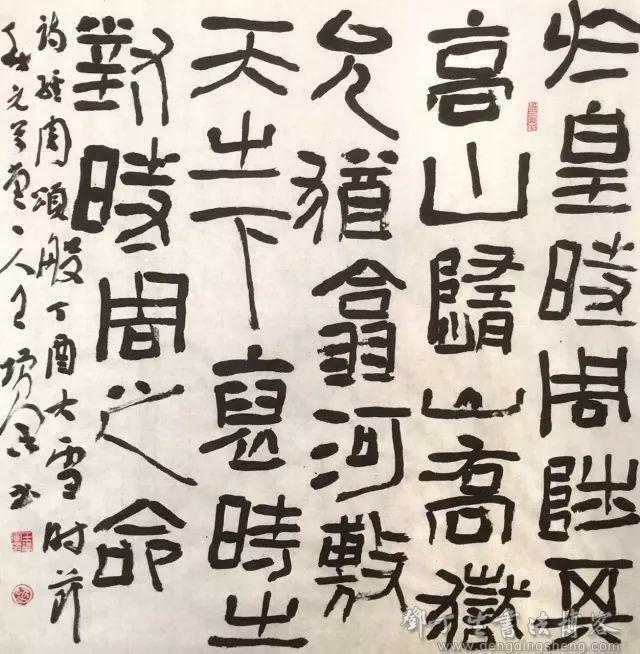 於皇時周陟其
高山嶞山喬嶽
允猶翕河敷
天之下裒時之
對時周之命
詩經周頌般丁酉大雪时節
人王
鄧丁生書法博客
www.dengdingsheng.com